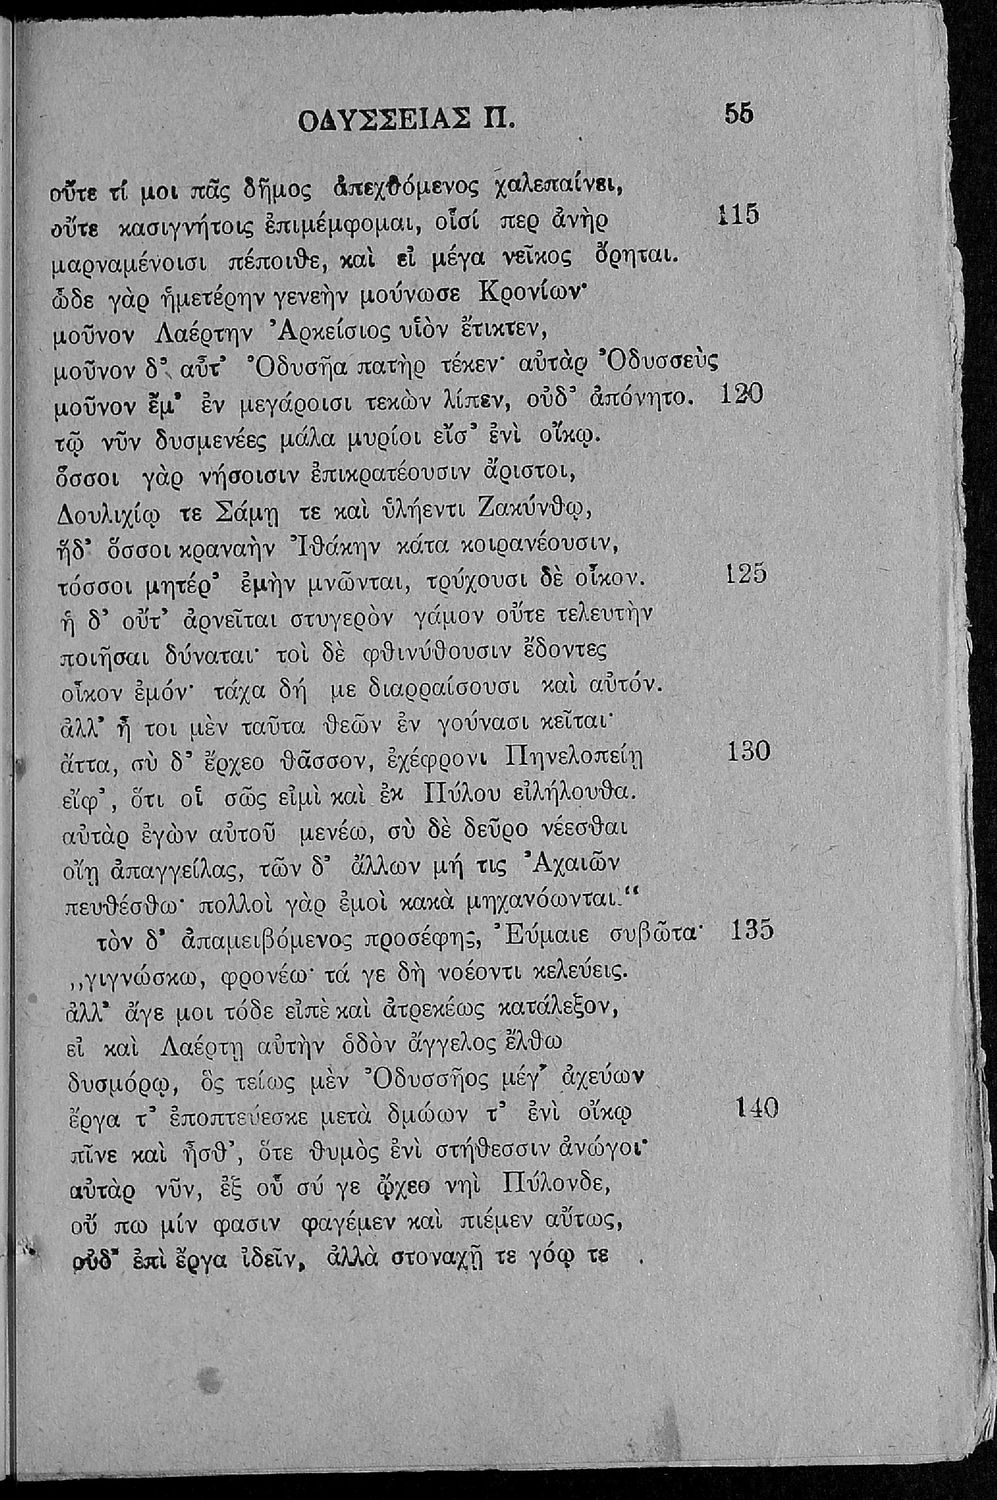 ΟΔΥΣΣΕΙΑΣ Π. 55
οὔτε τί μοι πᾶς δῆμος ἀπεχθόμενος χαλεπαίνει,
οὔτε κασιγνήτοις ἐπιμέμφομαι, οἷσί περ ἀνὴρ 115
μαρναμένοισι πέποιθε, καὶ εἰ μέγα νεῖκος ὄρηται.
ὧδε γὰρ ἡμετέρην γενεὴν μούνωσε Κρονίων·
μοῦνον Λαέρτην Ἀρκείσιος υἱὸν ἔτικτεν,
μοῦνον δ᾽ αὖτ᾽ Ὀδυσῆα πατὴρ τέκεν· αὐτὰρ Ὀδυσσεὺς
μοῦνον ἔμ᾽ ἐν μεγάροισι τεκὼν λίπεν, οὐδ᾽ ἀπόνητο. 120
τῷ νῦν δυσμενέες μάλα μυρίοι εἴσ᾽ ἐνὶ οἴκῳ.
ὅσσοι γὰρ νήσοισιν ἐπικρατέουσιν ἄριστοι,
Δουλιχίῳ τε Σάμῃ τε καὶ ὑλήεντι Ζακύνθῳ,
ἠδ᾽ ὅσσοι κραναὴν Ἰθάκην κάτα κοιρανέουσιν,
τόσσοι μητέρ᾽ ἐμὴν μνῶνται, τρύχουσι δὲ οἶκον. 125
ἡ δ᾽ οὔτ᾽ ἀρνεῖται στυγερὸν γάμον οὔτε τελευτὴν
ποιῆσαι δύναται· τοὶ δὲ φθινύθουσιν ἔδοντες
οἶκον ἐμόν· τάχα δή με διαρραίσουσι καὶ αὐτόν.
ἀλλ᾽ ἦ τοι μὲν ταῦτα θεῶν ἐν γούνασι κεῖται·
ἄττα, σὺ δ᾽ ἔρχεο θᾶσσον, ἐχέφρονι Πηνελοπείῃ 130
εἴφ᾽, ὅτι οἱ σῶς εἰμὶ καὶ ἐκ Πύλου εἰλήλουθα.
αὐτὰρ ἐγὼν αὐτοῦ μενέω, σὺ δὲ δεῦρο νέεσθαι
οἴῃ ἀπαγγείλας, τῶν δ᾽ ἄλλων μή τις Ἀχαιῶν
πευθέσθω· πολλοὶ γὰρ ἐμοὶ κακὰ μηχανόωνται.“
τὸν δ᾽ ἀπαμειβόμενος προσέφης, Εὔμαιε συβῶτα· 135
„γιγνώσκω, φρονέω· τά γε δὴ νοέοντι κελεύεις.
ἀλλ᾽ ἄγε μοι τόδε εἰπὲ καὶ ἀτρεκέως κατάλεξον,
εἰ καὶ Λαέρτῃ αὐτὴν ὁδὸν ἄγγελος ἔλθω
δυσμόρῳ, ὃς τείως μὲν Ὀδυσσῆος μέγ᾽ ἀχεύων
ἔργα τ᾽ ἐποπτεύεσκε μετὰ δμώων τ᾽ ἐνὶ οἴκῳ 140
πῖνε καὶ ἦσθ᾽, ὅτε θυμὸς ἐνὶ στήθεσσιν ἀνώγοι·
αὐτὰρ νῦν, ἐξ οὗ σύ γε ᾤχεο νηὶ Πύλονδε,
οὔ πω μίν φασιν φαγέμεν καὶ πιέμεν αὔτως,
οὐδ᾽ ἐπὶ ἔργα ἰδεῖν, ἀλλὰ στοναχῇ τε γόῳ τε